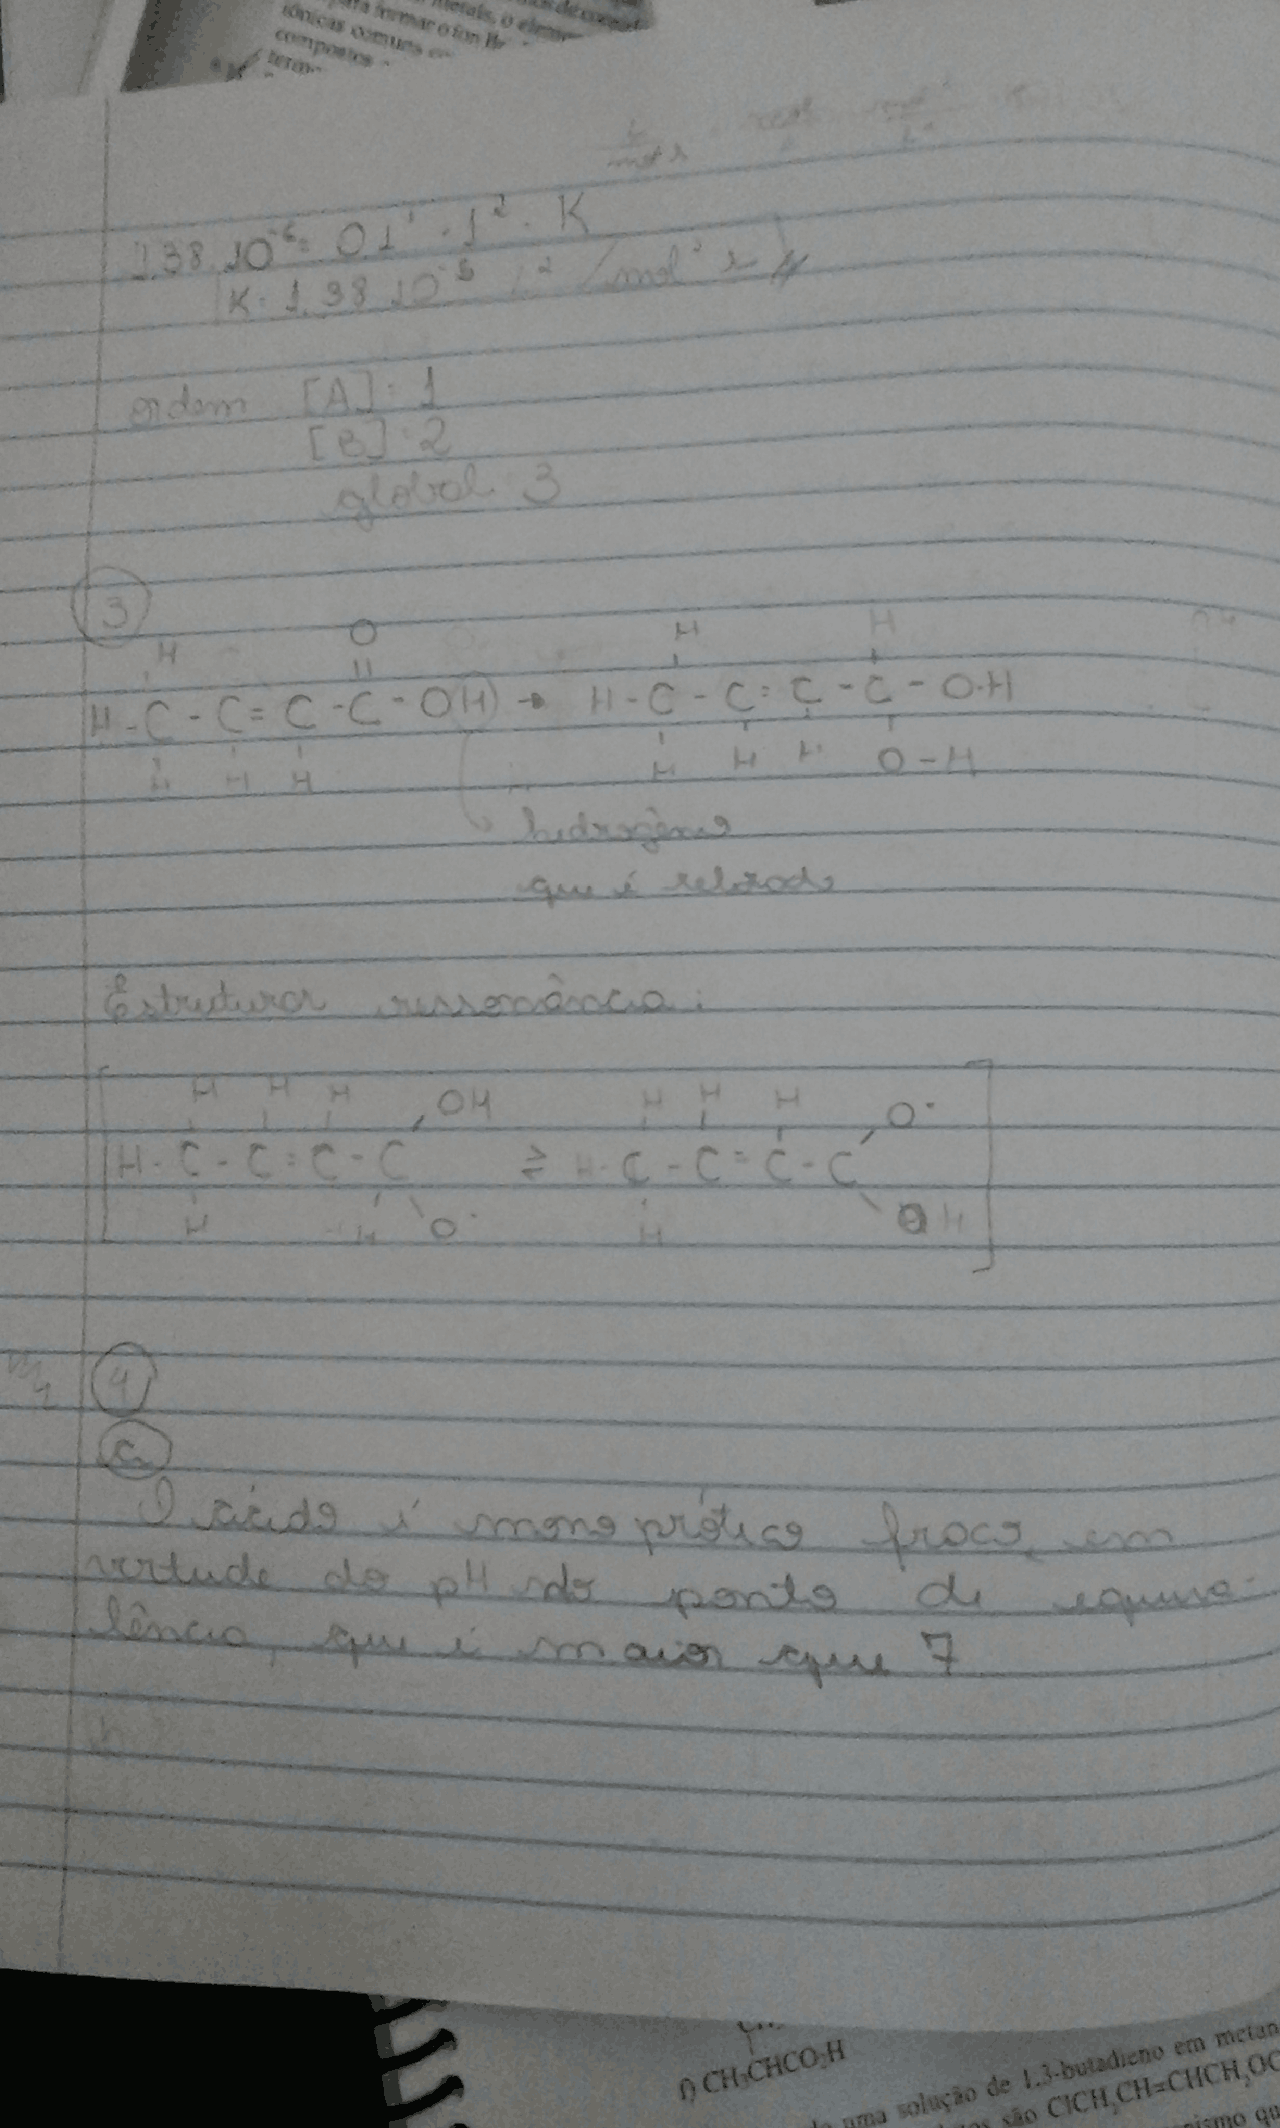 morais, o elem
para formar o íon
iônicas comuns
compostos
term
1.38 10^-6 = 0.1^1 · 1^2 · K
K: 1.38 10^-5 L^2 / mol^2 s
ordem [A]: 1
[B]: 2
global 3
3
H O H H
H-C-C=C-C-OH → H-C-C=C-C-O-H
H H H H H H O-H
hidrogênio
que é
Estrutura ressonância:
H H H OH H H H O·
H-C-C=C-C ⇄ H-C-C=C-C
H H O· H OH
4
a
O ácido é monoprótico fraco, em
virtude do pH do ponto de equiva-
lência, que é maior que 7
f) CH₃CHCO₂H
uma solução de 1,3-butadieno em metan
são ClCH₂CH=CHCH₂OC